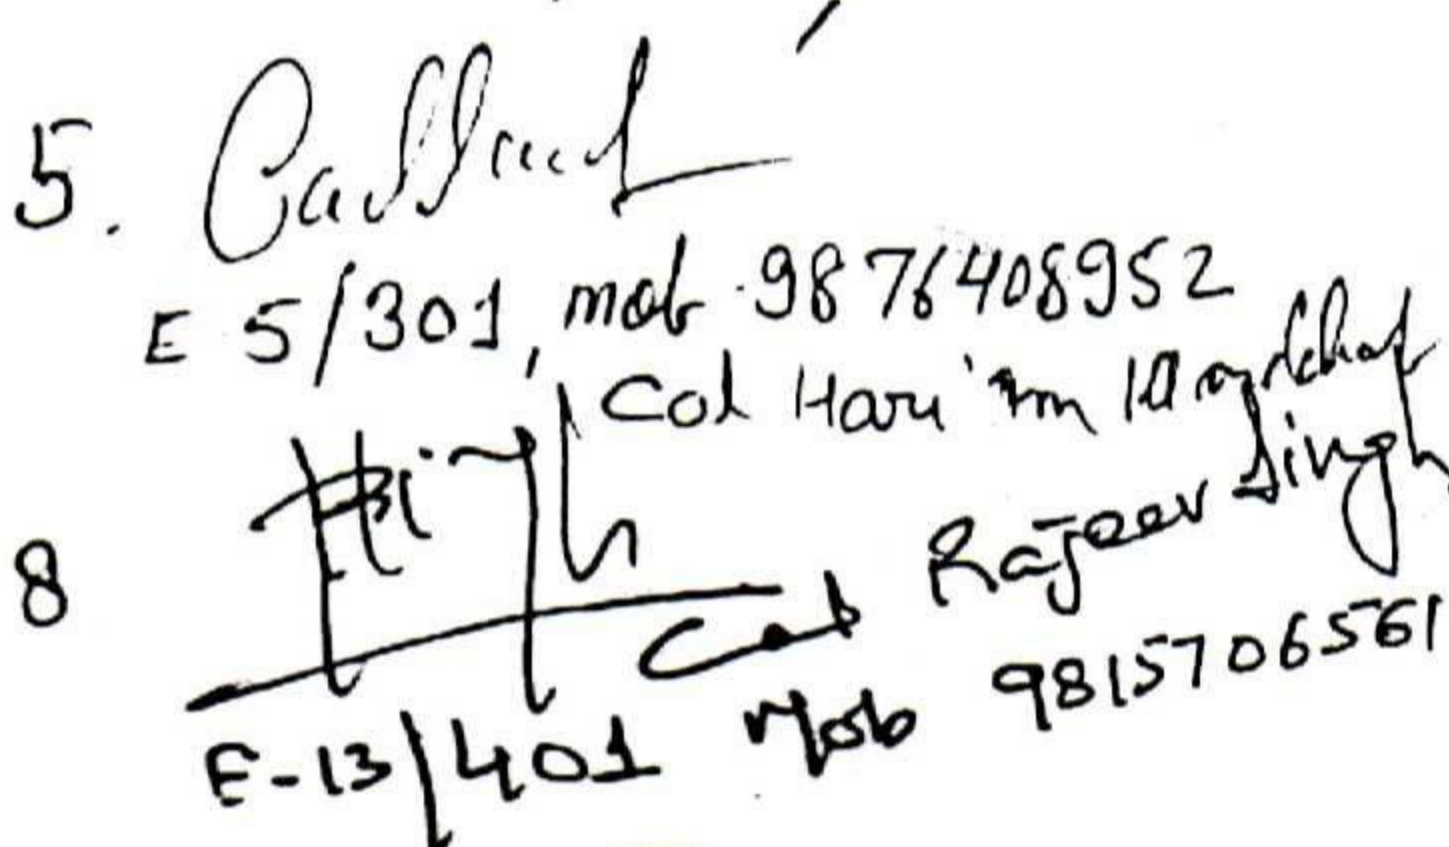 5.
E 5/301, mob 9876408952
Col
8
Col Rajeev Singh
E-13/401 Mob 9815706561